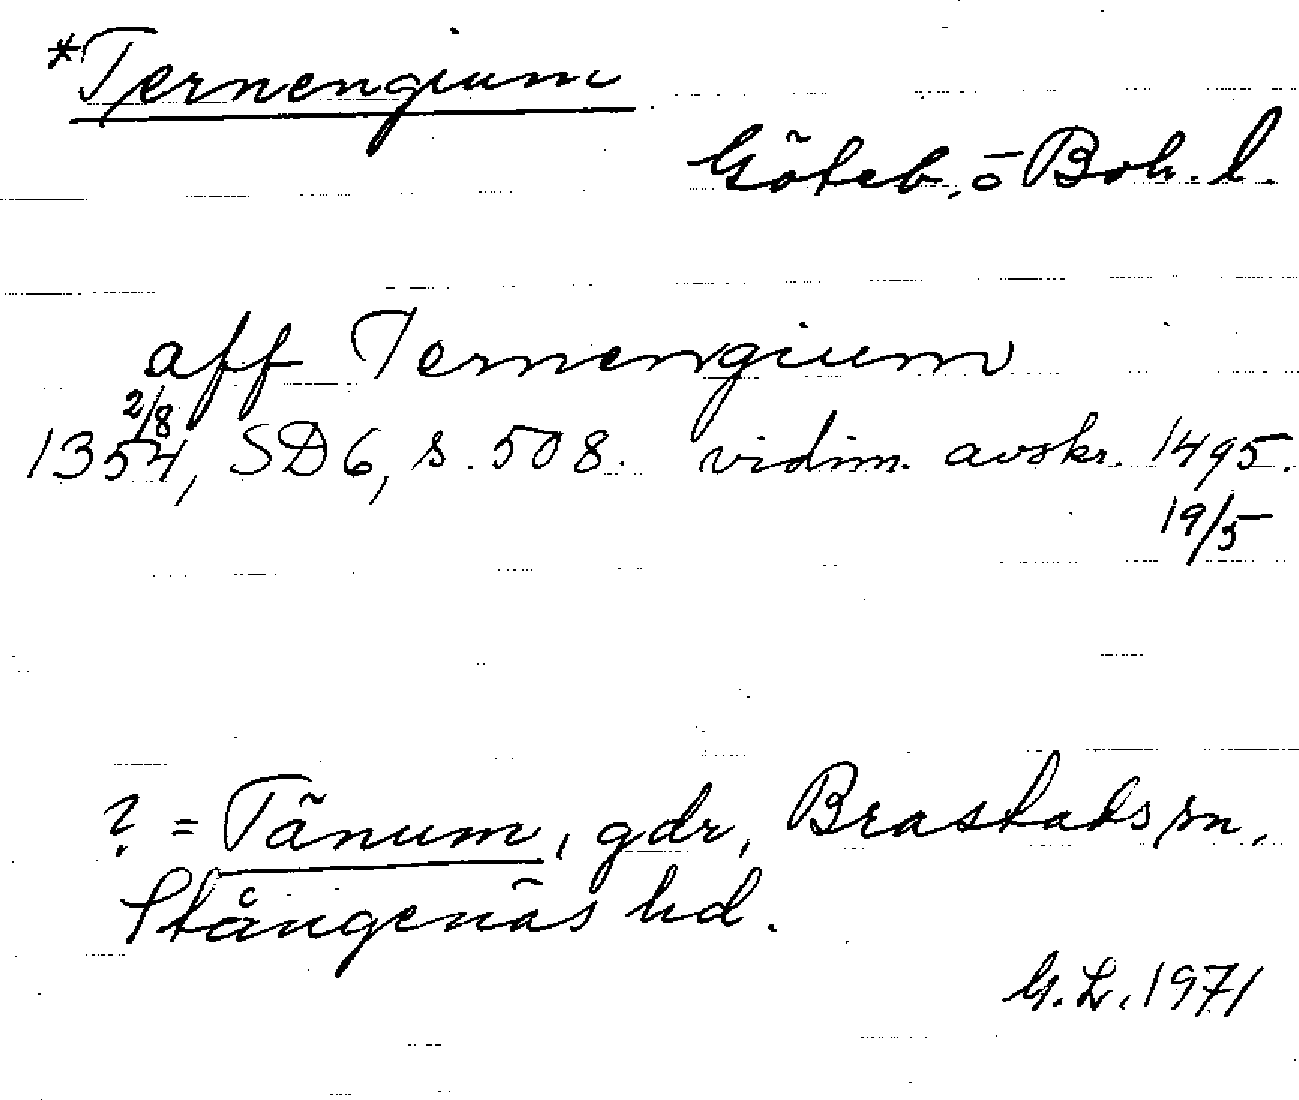 *Ternengium
Göteb. o Boh. l.
aff Ternengium
2/8
1354, SD6, s. 508. vidim. avskr. 1495.
19/5
? = Tänum, gdr, Brastads sn,
Stångenäs hd.
G.L. 1971